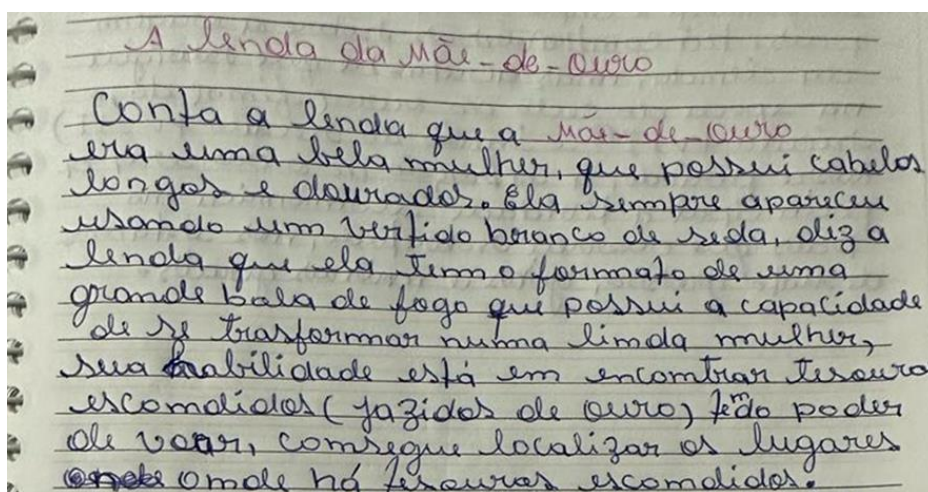 A lenda da Mãe-de-Ouro
Conta a lenda que a Mãe-de-ouro
era uma bela mulher, que possui cabelos
longos e dourados. Ela sempre apareceu
usando um vestido branco de seda, diz a
lenda que ela tem o formato de uma
grande bala de fogo que possui a capacidade
de se trasformar numa linda mulher,
sua habilidade está em encontrar tesouro
escondidos (jazidos de ouro) tendo poder
de voar, consegue localizar os lugares
onde há tesouros escondidos.